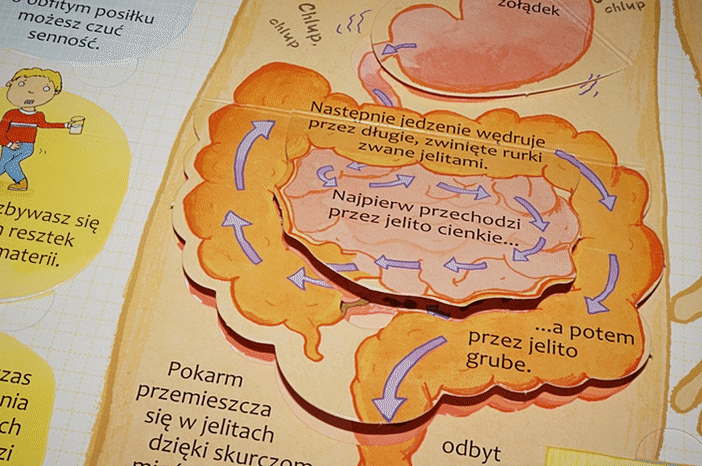 obfitym posiłku
możesz czuć
senność.
Chlup,
chlup
żołądek
chlup
Następnie jedzenie wędruje
przez długie, zwinięte rurki
zwane jelitami.
Najpierw przechodzi
przez jelito cienkie...
...a potem
przez jelito
grube.
zbywasz się
resztek
materii.
Pokarm
przemieszcza
się w jelitach
dzięki skurczom
odbyt